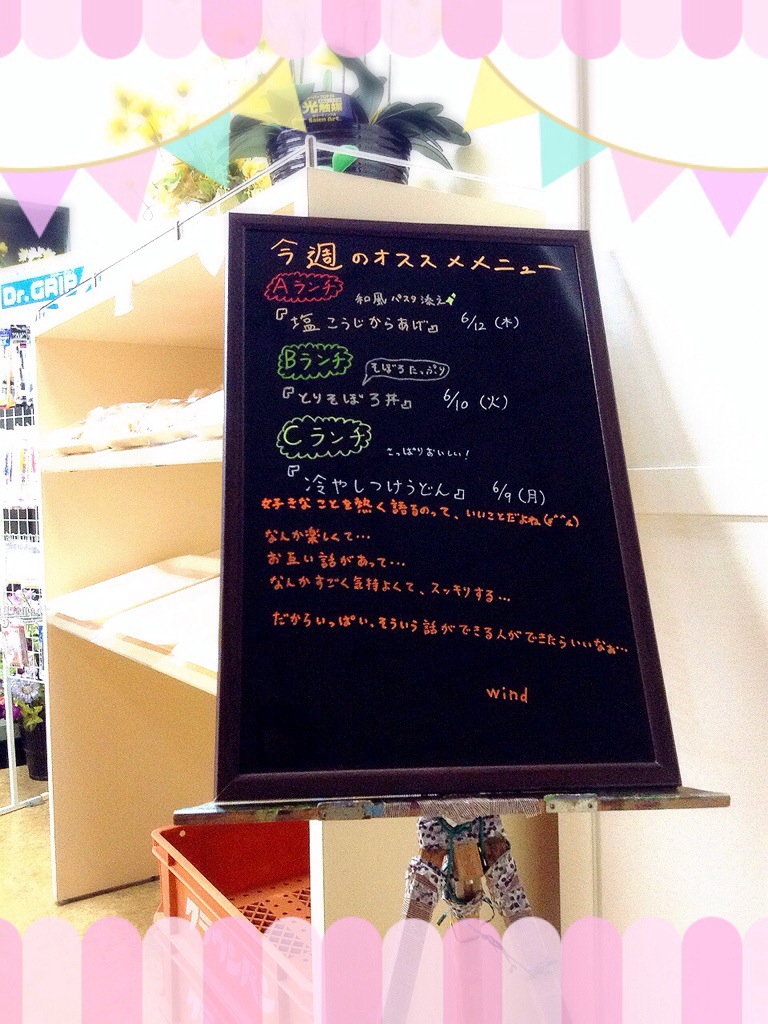 光触媒
Dr.GRIP
今週のオススメメニュー
Aランチ
和風パスタ添え
『塩こうじからあげ』 6/12(木)
Bランチ
そぼろたっぷり
『とりそぼろ丼』 6/10(火)
Cランチ
さっぱりおいしい!
『冷やしつけうどん』 6/9(月)
好きなことを熱く語るのって、いいことだよね
なんか楽しくて…
お互い話があって…
なんかすごく気持よくて、スッキリする…
だからいっぱい、そういう話ができる人ができたらいいなぁ…
wind